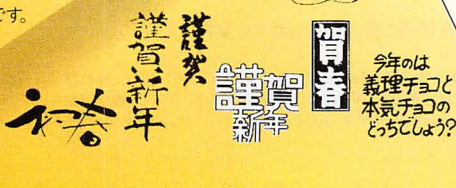 です。
初春
謹賀新年
謹賀
謹賀
新年
賀春
今年のは
義理チョコと
本気チョコの
どっちでしょう?